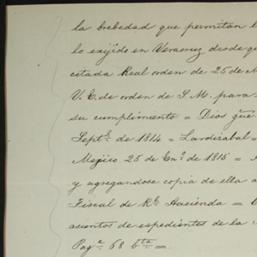 la brebedad que permitan l
lo exijido en Veracruz desde q
citada Real orden de 25 de
V. E. de orden de S. M. para
su cumplimiento = Dios gue
Septe. de 1814 = Lardizabal =
Mejico 25 de Eno. de 1815 =
y agregandose copia de ella a
Fiscal de Rl. Hacienda =
asuntos de espedientes de la
Pagna. 68 bta =